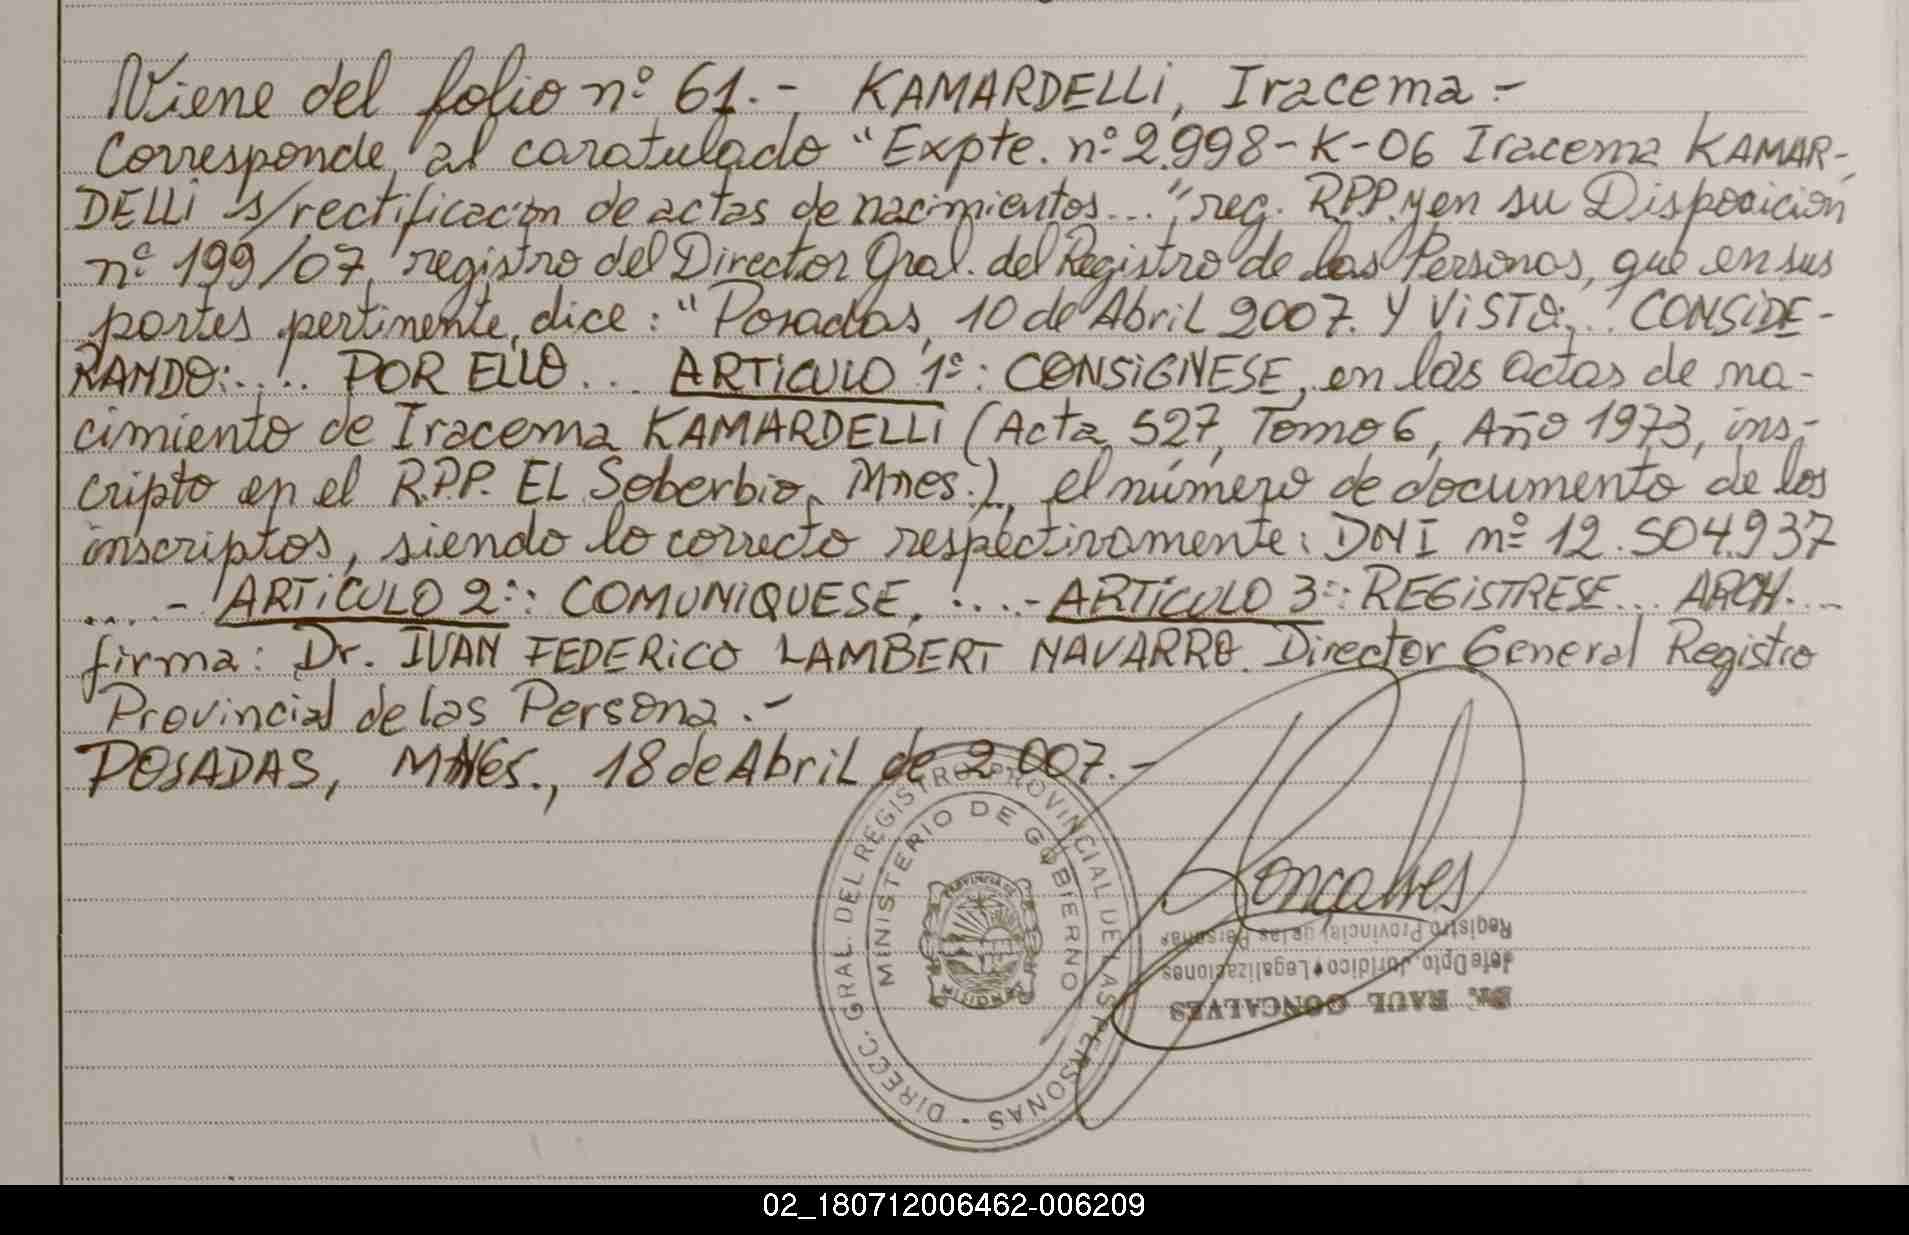 Viene del folio nº 61.- KAMARDELLI, Iracema.-
Corresponde, al caratulado "Expte. nº 2.998-K-06 Iracema KAMAR-
DELLI s/rectificacion de actas de nacimientos..." reg. RPP. y en su Disposicion
nº 199/07, registro del Director Gral. del Registro de las Personas, que en sus
partes pertinente, dice: "Posadas, 10 de Abril 2007. Y VISTO:... CONSIDE-
RANDO:.... POR ELLO... ARTICULO 1º: CONSIGNESE, en las actas de na-
cimiento de Iracema KAMARDELLI (Acta 527, Tomo 6, Año 1973, ins-
cripto en el R.P.P. EL Soberbio, Mnes.), el número de documento de los
inscriptos, siendo lo correcto respectivamente: DNI nº 12.504.937
....- ARTICULO 2º: COMUNIQUESE, ....- ARTICULO 3º: REGISTRESE... ARCH....
firma: Dr. IVAN FEDERICO LAMBERT NAVARRO. Director General Registro
Provincial de las Persona.-
POSADAS, MNes., 18 de Abril de 2007.-
DIRECC. GRAL. DEL REGISTRO PROVINCIAL DE LAS PERSONAS
MINISTERIO DE GOBIERNO
PROVINCIA DE MISIONES
Goncalves
Dr. RAUL GONCALVES
Jefe Dpto. Jurídico y Legalizaciones
Registro Provincial de las Personas
02_180712006462-006209